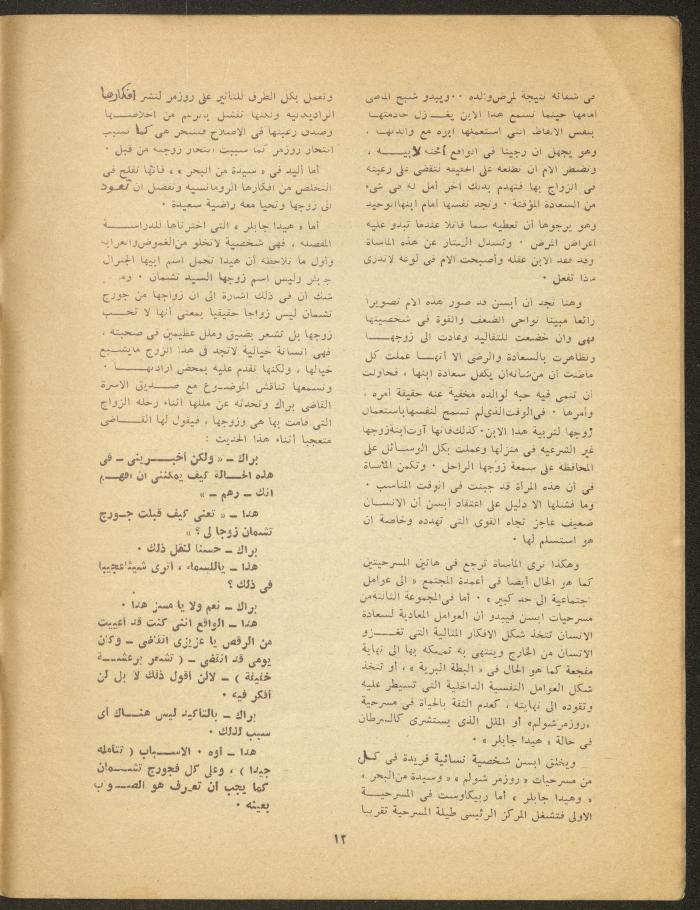 فى شفائه نتيجة لمرض والده ٠٠ ويبدو شبح الماضى
امامها حينما تسمع هذا الابن يغــازل خادمتها
بنفس الالفاظ التى استعملها ابوه مع والدتها ،
وهو يجهل أن رجينا فى الواقع أخته لابيــه ،
وتضطر الام أن تطلعه على الحقيقة لتقضى على رغبته
فى الزواج بها فتهدم بذلك آخر أمل له فى شىء
من السعادة المؤقتة ٠ وتجد نفسها أمام ابنها الوحيد
وهو يرجوها أن تعطيه سما قاتلا عندما تبدو عليه
أعراض المرض ٠ وتسدل الستار عن هذه المأساة
وقد فقد الابن عقله وأصبحت الام فى لوعة لاتدرى
ماذا تفعل ٠
وهنا نجد أن أبسن قد صور هذه الام تصويرا
رائعا مبينا نواحى الضعف والقوة فى شخصيتها
فهى وان خضعت للتقاليد وعادت الى زوجهــا
وتظاهرت بالسعادة والرضى الا أنهــا عملت كل
ماظنت أن من شأنه أن يكفل سعادة ابنها ، فحاولت
أن تنمى فيه حبه لوالده مخفية عنه حقيقة أمره ،
وأمرها ٠ فى الوقت الذى لم تسمح لنفسها باستعمال
زوجها لتربية هذا الابن٠ كذلك فانها آوت ابنة زوجها
غير الشرعيه فى منزلها وعملت بكل الوســائل على
المحافظه على سمعة زوجها الراحل ٠ وتكمن المأساة
فى أن هذه المرأة قد جبنت فى الوقت المناسب ٠
وما فشلها الا دليل على اعتقاد أبسن أن الانســان
ضعيف عاجز تجاه القوى التى تهدده وخاصة ان
هو استسلم لها ٠
وهكذا نرى المأساة ترجع فى هاتين المسرحيتين
كما هو الحال أيضا فى أعمدة المجتمع « الى عوامل
اجتماعية الى حد كبير » ٠ أما فى المجموعة الثالثة من
مسرحيات ابسن فيبدو أن العوامل المعادية لسعادة
الانسان تتخذ شكل الافكار المثالية التى تغــزو
الانسان من الخارج وينتهى به تمسكه بها الى نهاية
مفجعة كما هو الحال فى « البطة البرية » ، أو تتخذ
شكل العوامل النفسية الداخلية التى تسيطر عليه
وتقوده الى نهايته ، كعدم الثقة بالحياة فى مسرحية
«روزمر شولم» أو الملل الذى يستشرى كالسرطان
فى حالة « هيدا جابلر » ٠
ويخلق ابسن شخصية نسائية فريدة فى كــل
من مسرحيات « روزمر شولم » « وسيدة من البحر »
« وهيدا جابلر » أما ربيكاوست فى المسرحيــة
الاولى فتشغل المركز الرئيسى طيلة المسرحية تقريبا
وتعمل بكل الطرق للتأثير على روزمر لنشر افكارها
الراديكالية ولكنها تفشل بالرغم من اخلاصــها
وصدق رغبتها فى الاصلاح فتنتحر هى كما تسبب
انتحار روزمر كما سببت انتحار زوجته من قبل ٠
أما أليد فى « سيدة من البحر » ، فانها تفلح فى
التخلص من أفكارها الرومانسية وتفضل ان تعود
الى زوجها وتحيا معه راضية سعيدة ٠
أما « هيدا جابلر » التى اخترناها للدراســة
المفصلة ، فهى شخصية لاتخلو من الغموض والغرابة
وأول ما نلاحظه أن هيدا تحمل اسم ابيها الجنرال
جابلر وليس اسم زوجها السيد تشمان ٠ وما
شك أن فى ذلك اشارة الى ان زواجها من جورج
تشمان ليس زواجا حقيقيا بمعنى أنها لا تحــب
زوجها بل تشعر بضيق وملل عظيمين فى صحبته ،
فهى انسانة خيالية لاتجد فى هذا الزوج مايشــبع
خيالها ، ولكنها تقدم عليه بمحض ارادتهــا ٠
ونسمعها تناقش الموضــوع مع صــديق الاسرة
القاضى براك وتحدثه عن مللها أثناء رحلة الزواج
التى قامت بها هى وزوجها ، فيقول لها القــاضى
متعجبا أثناء هذا الحديث :
براك ــ « ولكن أخبــرينى ــ فى
هذه الحــالة كيف يمكننى ان افهــم
انك ــ رهم ــ »
هدا ــ « تعنى كيف قبلت جــورج
تشمان زوجا لى ؟ »
براك ــ حسنا لنقل ذلك ٠
هدا ــ ياللسماء ، أترى شيئا عجيبا
فى ذلك ؟
براك ــ نعم ولا يا مسز هدا ٠
هدا ــ الواقع اننى كنت قد أعييت
من الرقص يا عزيزى القاضى ــ وكان
يومى قد انقضى ــ ( تشعر برعشــة
خفيفة ) ــ لالن أقول ذلك لا بل لن
أفكر فيه ٠
براك ــ بالتأكيد ليس هنــاك أى
سبب لذلك ٠
هدا ــ أوه ٠ الاســباب ( تتأمله
جيدا ) ، وعلى كل فجورج تشــمان
كما يجب أن تعترف هو الصــواب
بعينه ٠
١٢